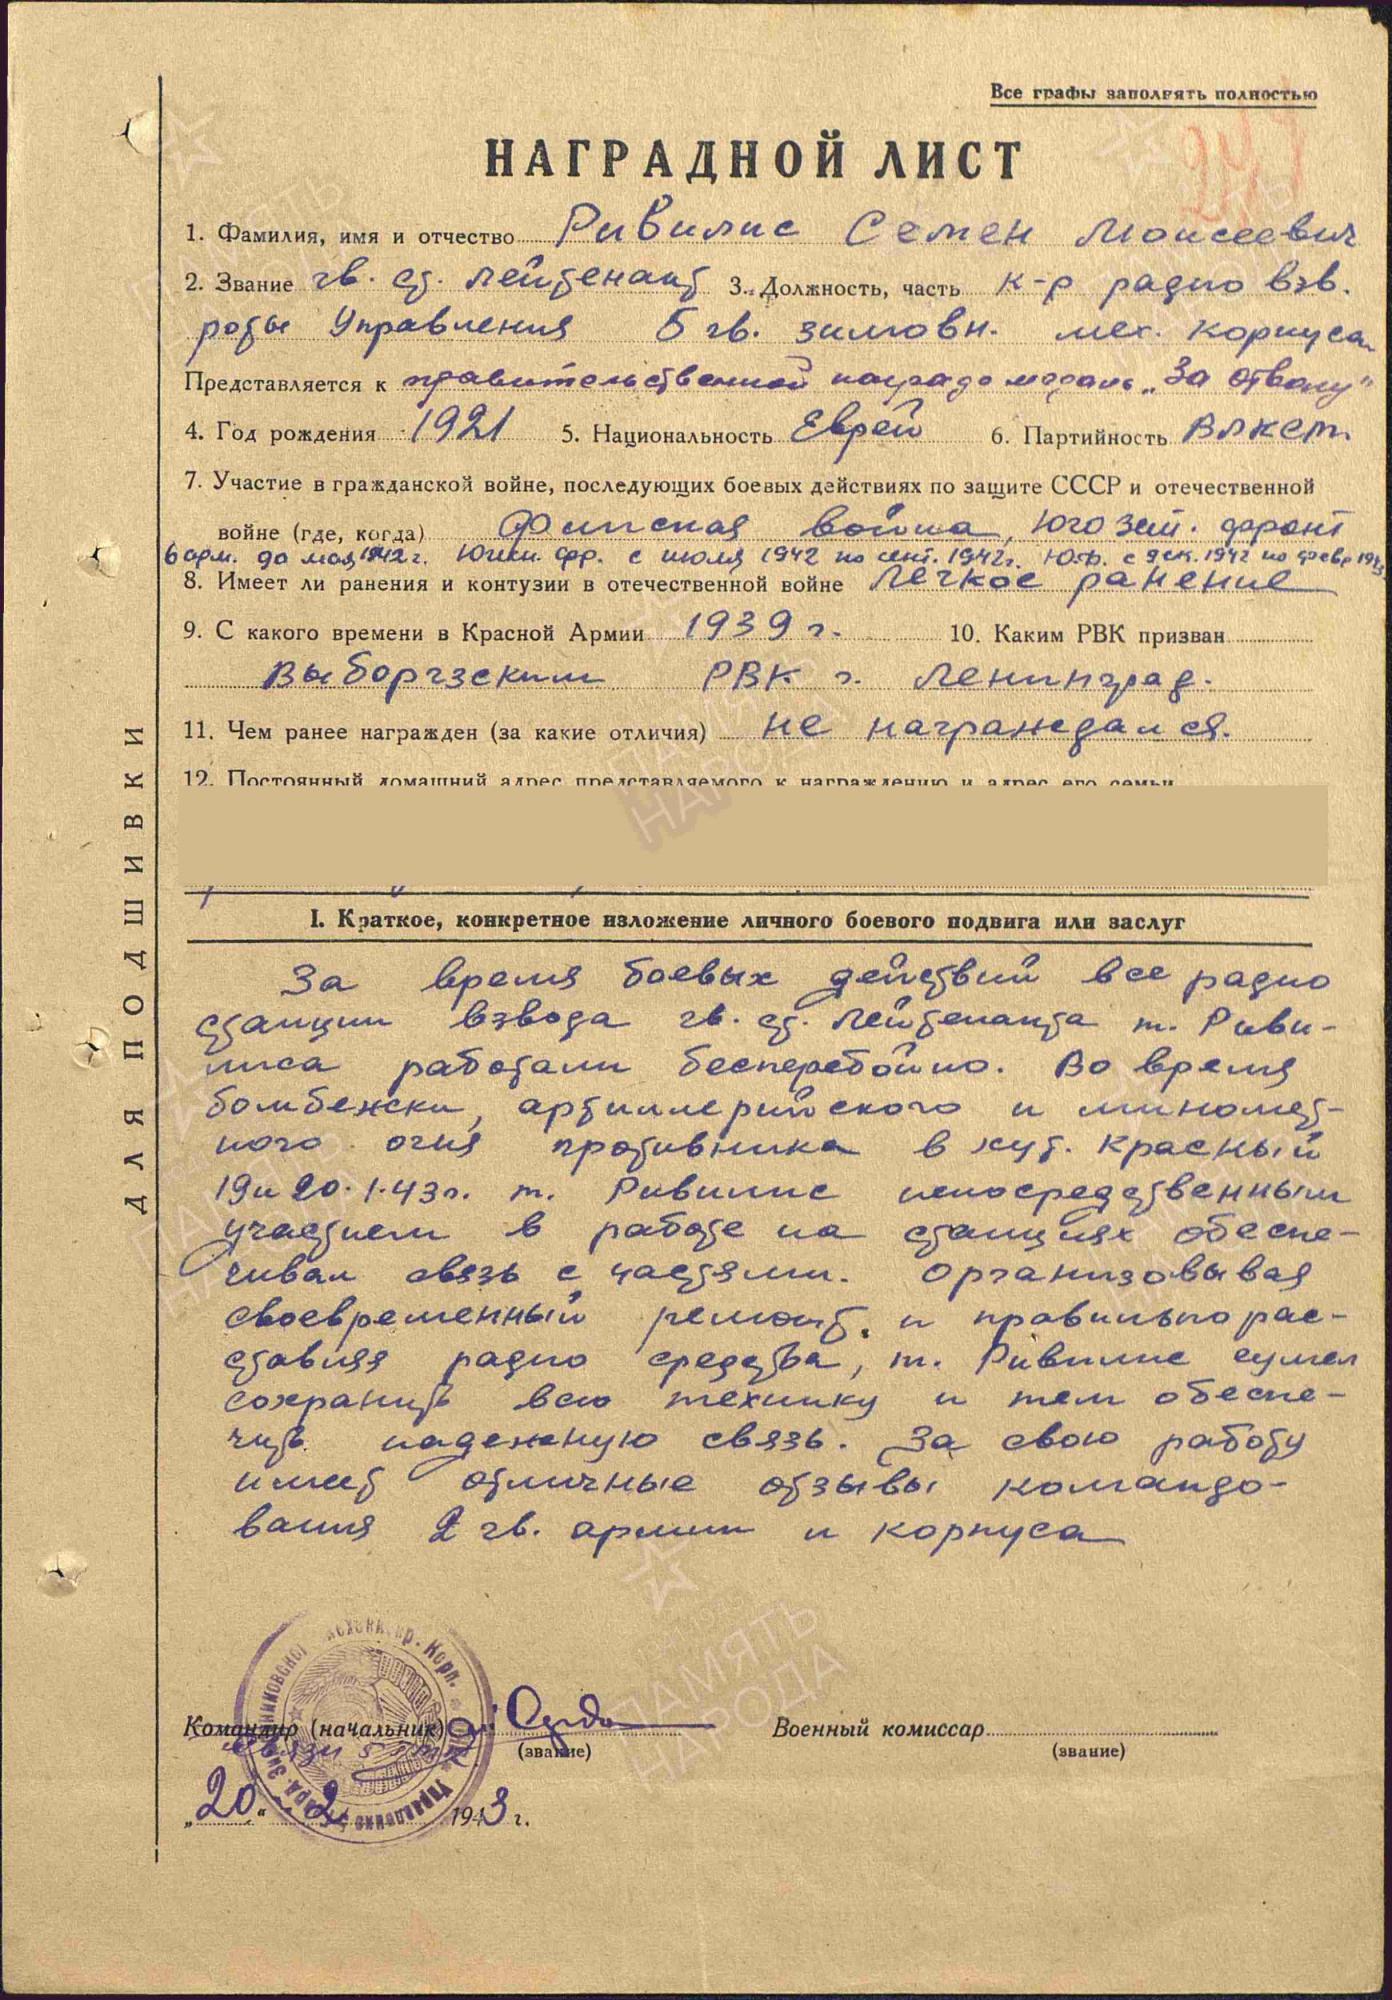 Все графы заполнять полностью
НАГРАДНОЙ ЛИСТ
1. Фамилия, имя и отчество Ривилис Семен Моисеевич
2. Звание гв. ст. лейтенант 3. Должность, часть к-р радио взв.
роты Управления 5 гв. зимовн. мех. корпуса
Представляется к правительственной награде медаль „За отвагу"
4. Год рождения 1921 5. Национальность Еврей 6. Партийность ВЛКСМ
7. Участие в гражданской войне, последующих боевых действиях по защите СССР и отечественной
войне (где, когда) Финская война, Юго Зап. фронт
6 арм. до мая 1942 г. Южн. фр. с июля 1942 по сент. 1942 г. Ю.Ф. с дек. 1942 по февр 1943
8. Имеет ли ранения и контузии в отечественной войне Легкое ранение
9. С какого времени в Красной Армии 1939 г. 10. Каким РВК призван
Выборгзским РВК г. Ленинград.
11. Чем ранее награжден (за какие отличия) не награждался.
12. Постоянный домашний адрес представляемого к награждению и адрес его семьи
I. Краткое, конкретное изложение личного боевого подвига или заслуг
За время боевых действий все радио
станции взвода гв. ст. лейтенанта т. Риви-
лиса работали бесперебойно. Во время
бомбежки, артиллерийского и миномет-
ного огня противника в хут. Красный
19 и 20.1.43 г. т. Ривилис непосредственным
участием в работе на станциях обеспе-
чивал связь с частями. Организовывая
своевременный ремонт, и правильно рас-
ставляя радио средства, т. Ривилис сумел
сохранить всю технику и тем обеспе-
чить надежную связь. За свою работу
имеет отличные отзывы командо-
вания 2 гв. армии и корпуса
Командир (начальник) Военный комиссар
связи
(звание) (звание)
„20" 2 1943 г.
ДЛЯ ПОДШИВКИ
ПАМЯТЬ
НАРОДА